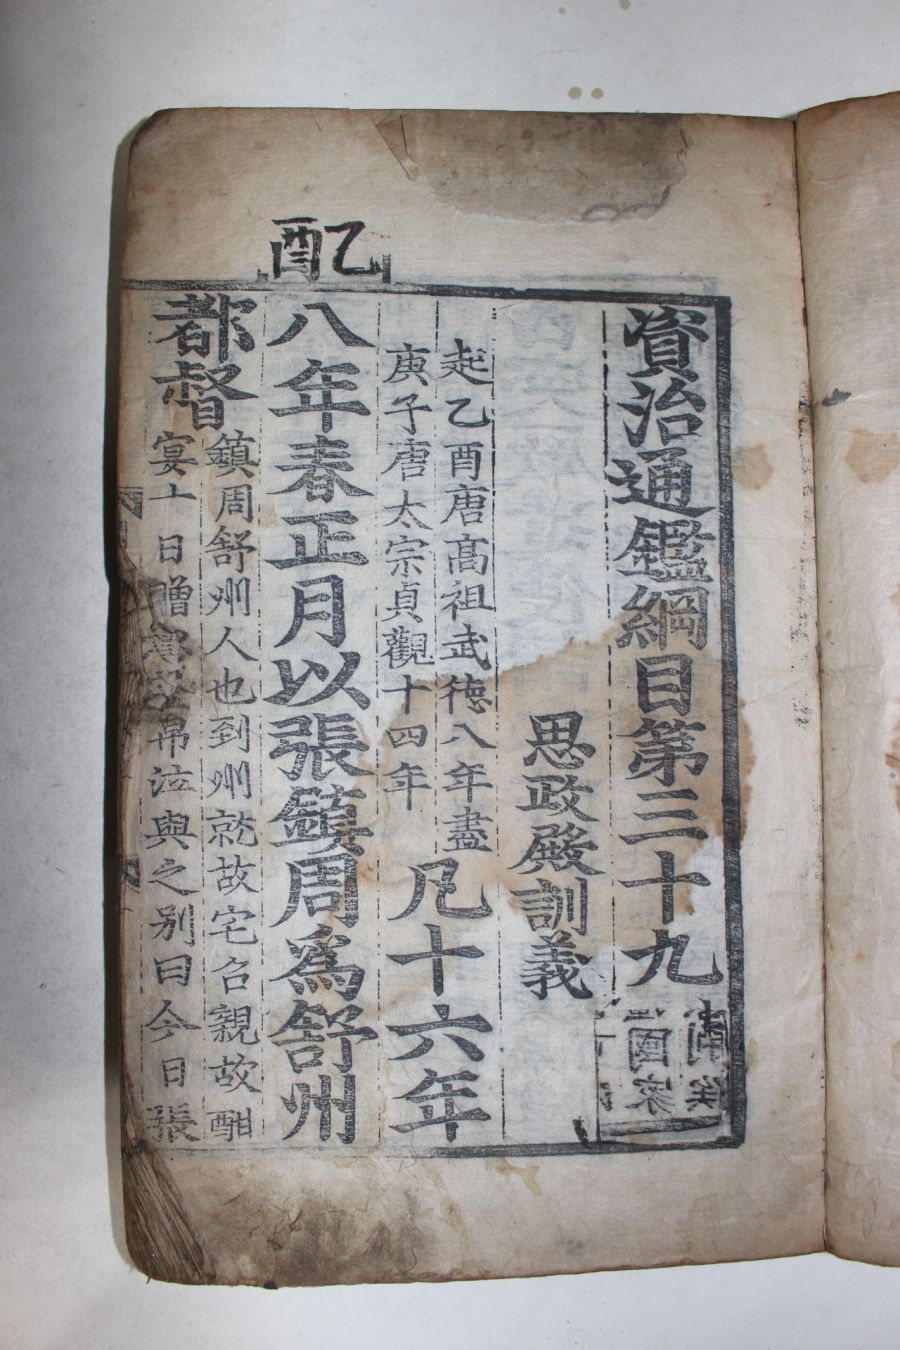 資治通鑑綱目第三十九
思政殿訓義
起乙酉唐高祖武德八年盡
庚子唐太宗貞觀十四年
凡十六年
乙酉
八年春正月以張鎮周爲舒州
都督
鎮周舒州人也到州就故宅召親故酣
宴十日贈帛泣與之別曰今日張